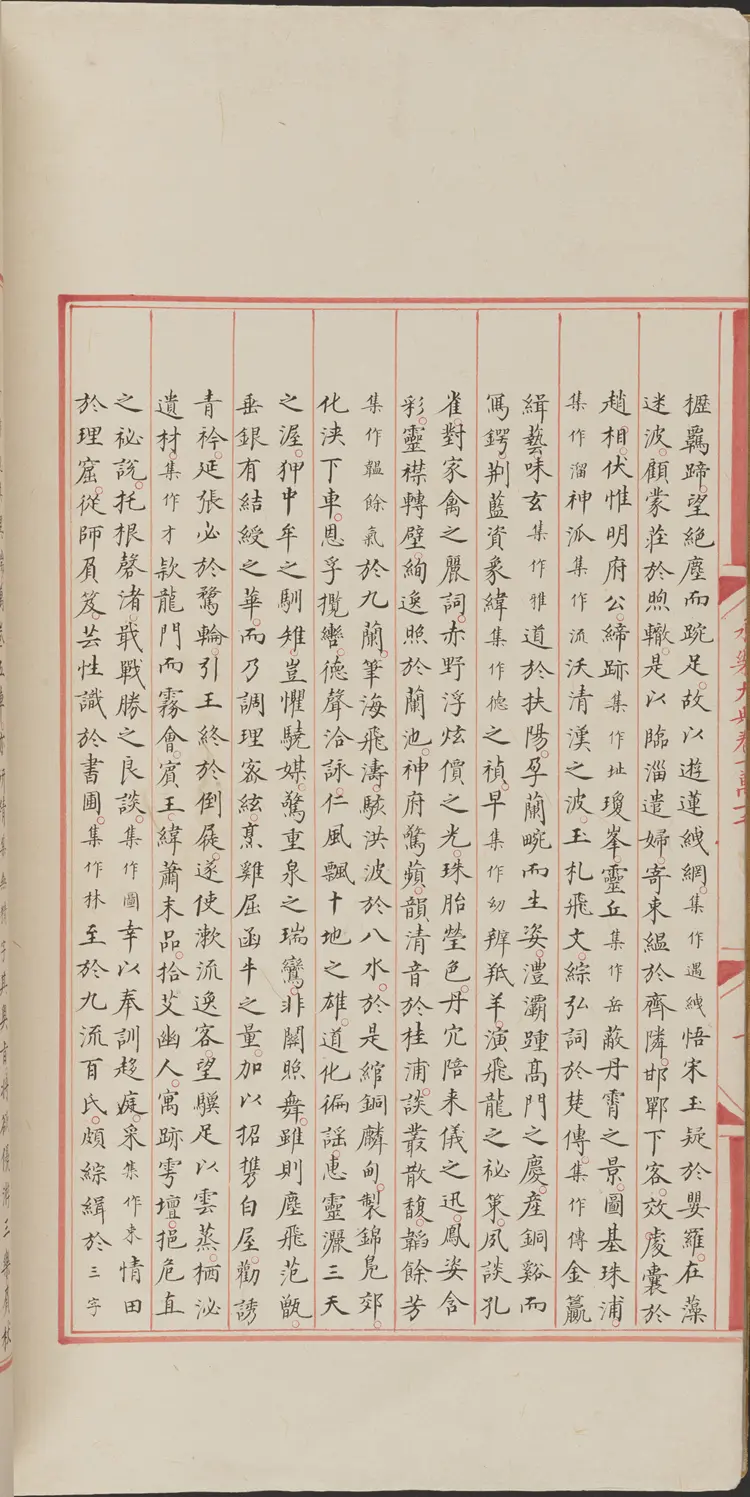 櫪羈蹄。望絕塵而踠足。故以遊蓮緎網。集作遇緎悟宋玉疑於嬰羅。在藻
迷波。顧蒙莊於煦轍。是以臨淄遣婦。寄束緼於齊隣。邯鄲下客。效處囊於
趙相。伏惟明府公。締跡集作址瓊峯。靈丘集作岳蔽丹霄之景。圖基珠浦。
集作溜神派集作流沃清漢之波。玉札飛文。綜弘詞於楚傳。集作傳金籯
緝藝。味玄集作雅道於扶陽。孕蘭畹而生姿。澧灞踵高門之慶。產銅谿而
寫鍔。荆藍資象緯集作德之禎。早集作幼辨羝羊。演飛龍之祕策。夙談孔
雀。對家禽之麗詞。赤野浮炫價之光。珠胎瑩色。丹穴陪来儀之迅。鳳姿含
彩。靈襟轉壁。絢逸照於蘭池。神府驚蘋。韻清音於桂浦。談叢散馥。韜餘芳
集作韞餘氣於九蘭。筆海飛濤。駭洪波於八水。於是綰銅麟甸。製錦鳧郊。
化浹下車。恩孚攬轡。德聲洽詠。仁風飄十地之雄。道化徧謡。惠靈灑三天
之渥。狎中牟之馴雉。豈懼驍媒。驚重泉之瑞鸞。非關照舞。雖則塵飛范甑。
垂銀有結綬之華。而乃調理宓絃。烹雞屈函牛之量。加以招攜白屋。勸誘
青衿。延張必於騖輪。引王終於倒屣。遂使漱流逸客。望驥足以雲蒸。栖泌
遺材。集作才款龍門而霧會。賓王緯蕭末品。拾艾幽人。寓跡雩壇。挹危直
之祕說。托根磬渚。戢戰勝之良談。集作圖幸以奉訓趍庭。采集作来情田
於理窟。從師屓笈。芸性識於書圃。集作林至於九流百氏。頗綜緝於三字
永樂大典卷